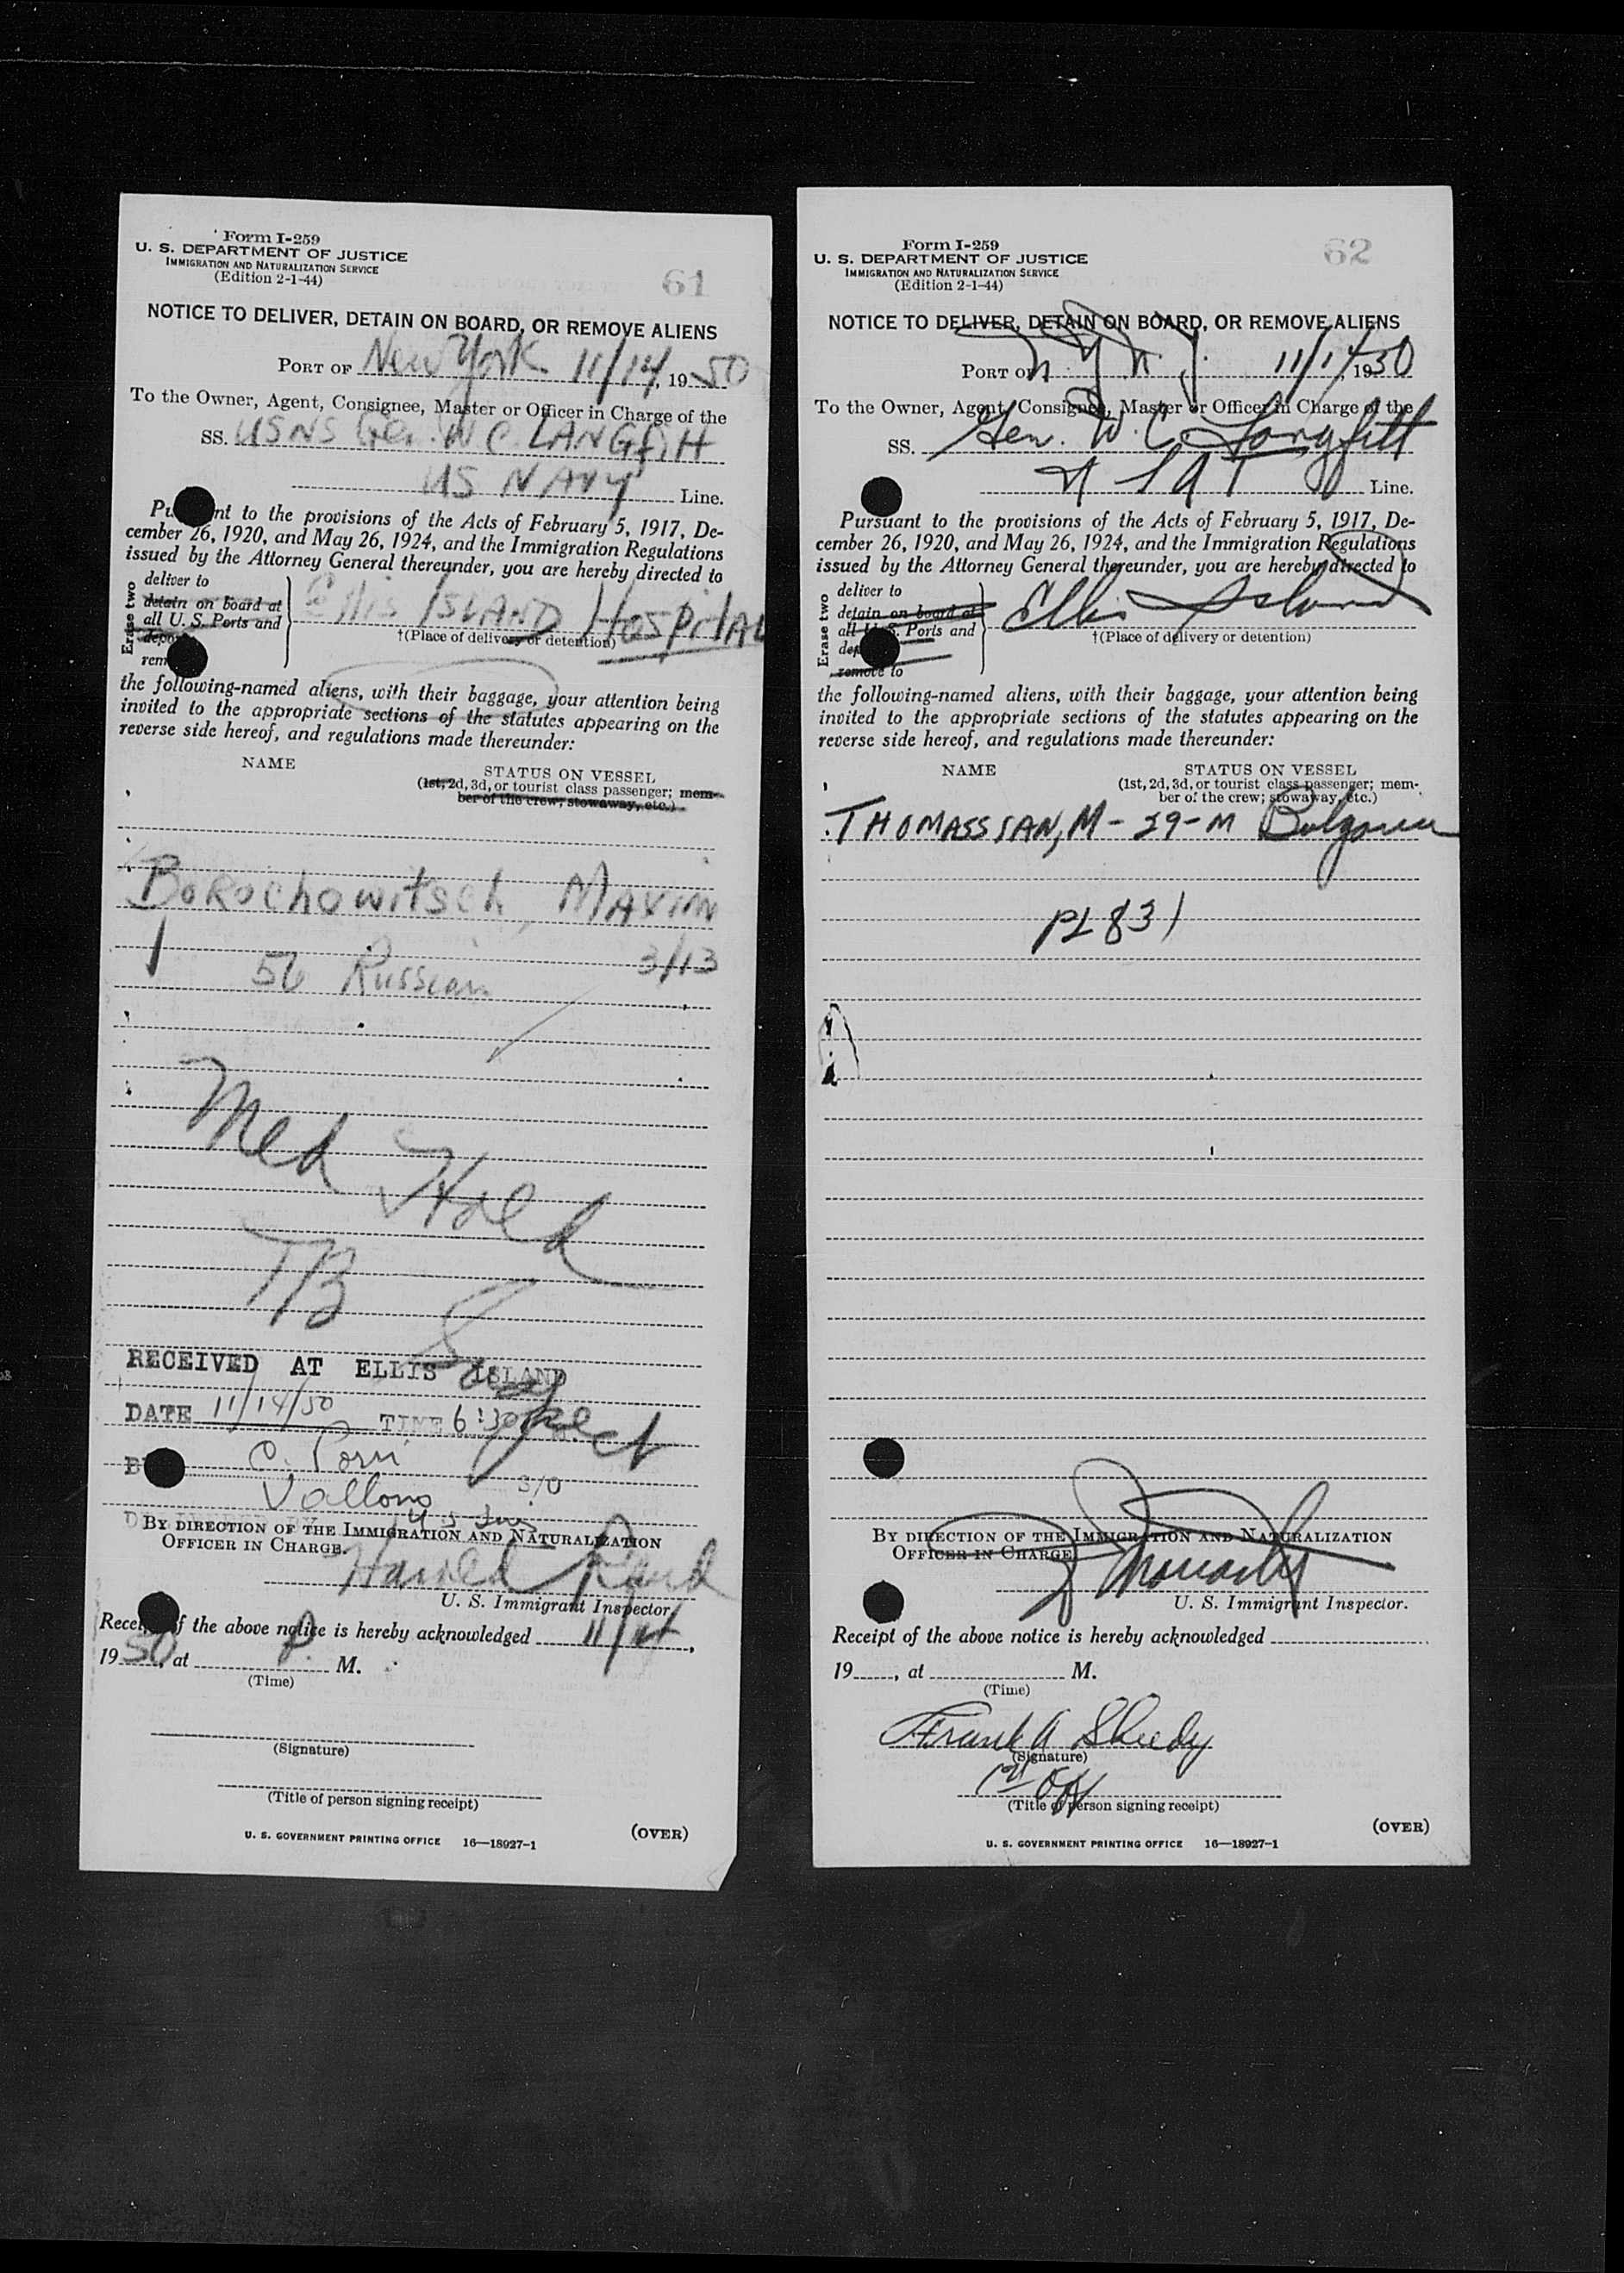 Form I-259
U. S. DEPARTMENT OF JUSTICE
IMMIGRATION AND NATURALIZATION SERVICE
(Edition 2-1-44)
61
NOTICE TO DELIVER, DETAIN ON BOARD, OR REMOVE ALIENS
PORT OF New York 11/14, 1950
To the Owner, Agent, Consignee, Master or Officer in Charge of the
SS. USNS Gen. W C LANGfitt
US NAVY Line.
Pu nt to the provisions of the Acts of February 5, 1917, De-
cember 26, 1920, and May 26, 1924, and the Immigration Regulations
issued by the Attorney General thereunder, you are hereby directed to
Erase two
deliver to
detain on board at
all U. S. Ports and
depo
rem
Ellis ISLAND HospitAL
†(Place of delivery or detention)
the following-named aliens, with their baggage, your attention being
invited to the appropriate sections of the statutes appearing on the
reverse side hereof, and regulations made thereunder:
NAME
STATUS ON VESSEL
(1st, 2d, 3d, or tourist class passenger; mem-
ber of the crew; stowaway, etc.)
Borochowitsch, MAXIM
1 56 Russian 3/13
Med Hold
TB
RECEIVED AT ELLIS ISLAND
DATE 11/14/50 TIME 6:30
B
S/O
BY DIRECTION OF THE IMMIGRATION AND NATURALIZATION
OFFICER IN CHARGE.
Harold
U. S. Immigrant Inspector.
Recei f the above notice is hereby acknowledged 11/14,
1950, at P. M.
(Time)
(Signature)
(Title of person signing receipt)
U. S. GOVERNMENT PRINTING OFFICE 16—18927-1
(OVER)
Form I-259
U. S. DEPARTMENT OF JUSTICE
IMMIGRATION AND NATURALIZATION SERVICE
(Edition 2-1-44)
62
NOTICE TO DELIVER, DETAIN ON BOARD, OR REMOVE ALIENS
PORT OF N. Y. N. Y. 11/14, 1950
To the Owner, Agent, Consignee, Master or Officer in Charge of the
SS. Gen. W. C. Langfitt
Line.
Pursuant to the provisions of the Acts of February 5, 1917, De-
cember 26, 1920, and May 26, 1924, and the Immigration Regulations
issued by the Attorney General thereunder, you are hereby directed to
Erase two
deliver to
detain on board at
all U. S. Ports and
dep
remove to
Ellis Island
†(Place of delivery or detention)
the following-named aliens, with their baggage, your attention being
invited to the appropriate sections of the statutes appearing on the
reverse side hereof, and regulations made thereunder:
NAME
STATUS ON VESSEL
(1st, 2d, 3d, or tourist class passenger; mem-
ber of the crew; stowaway, etc.)
THOMASSIAN, M - 29 - M Bulgaria
PL 831
BY DIRECTION OF THE IMMIGRATION AND NATURALIZATION
OFFICER IN CHARGE
U. S. Immigrant Inspector.
Receipt of the above notice is hereby acknowledged
19 , at M.
(Time)
Frank A Sheedy
(Signature)
(Title of person signing receipt)
U. S. GOVERNMENT PRINTING OFFICE 16—18927-1
(OVER)